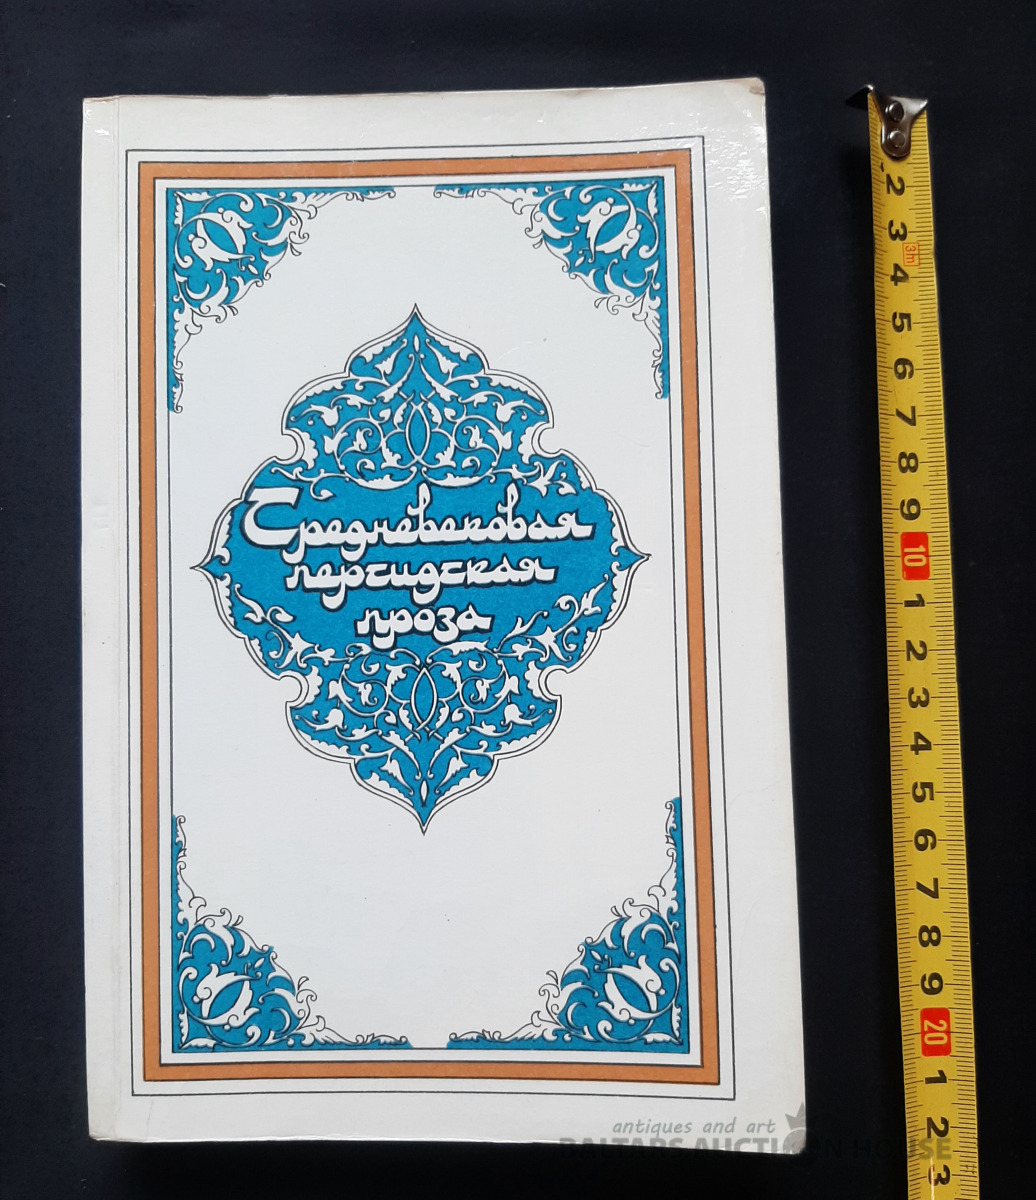 Средневековая
персидская
проза
2
3
3m
4
5
6
7
8
9
10
1
2
3
4
5
6
7
8
9
20
1
2
3
antiques and art
BALTARS AUCTION HOUSE